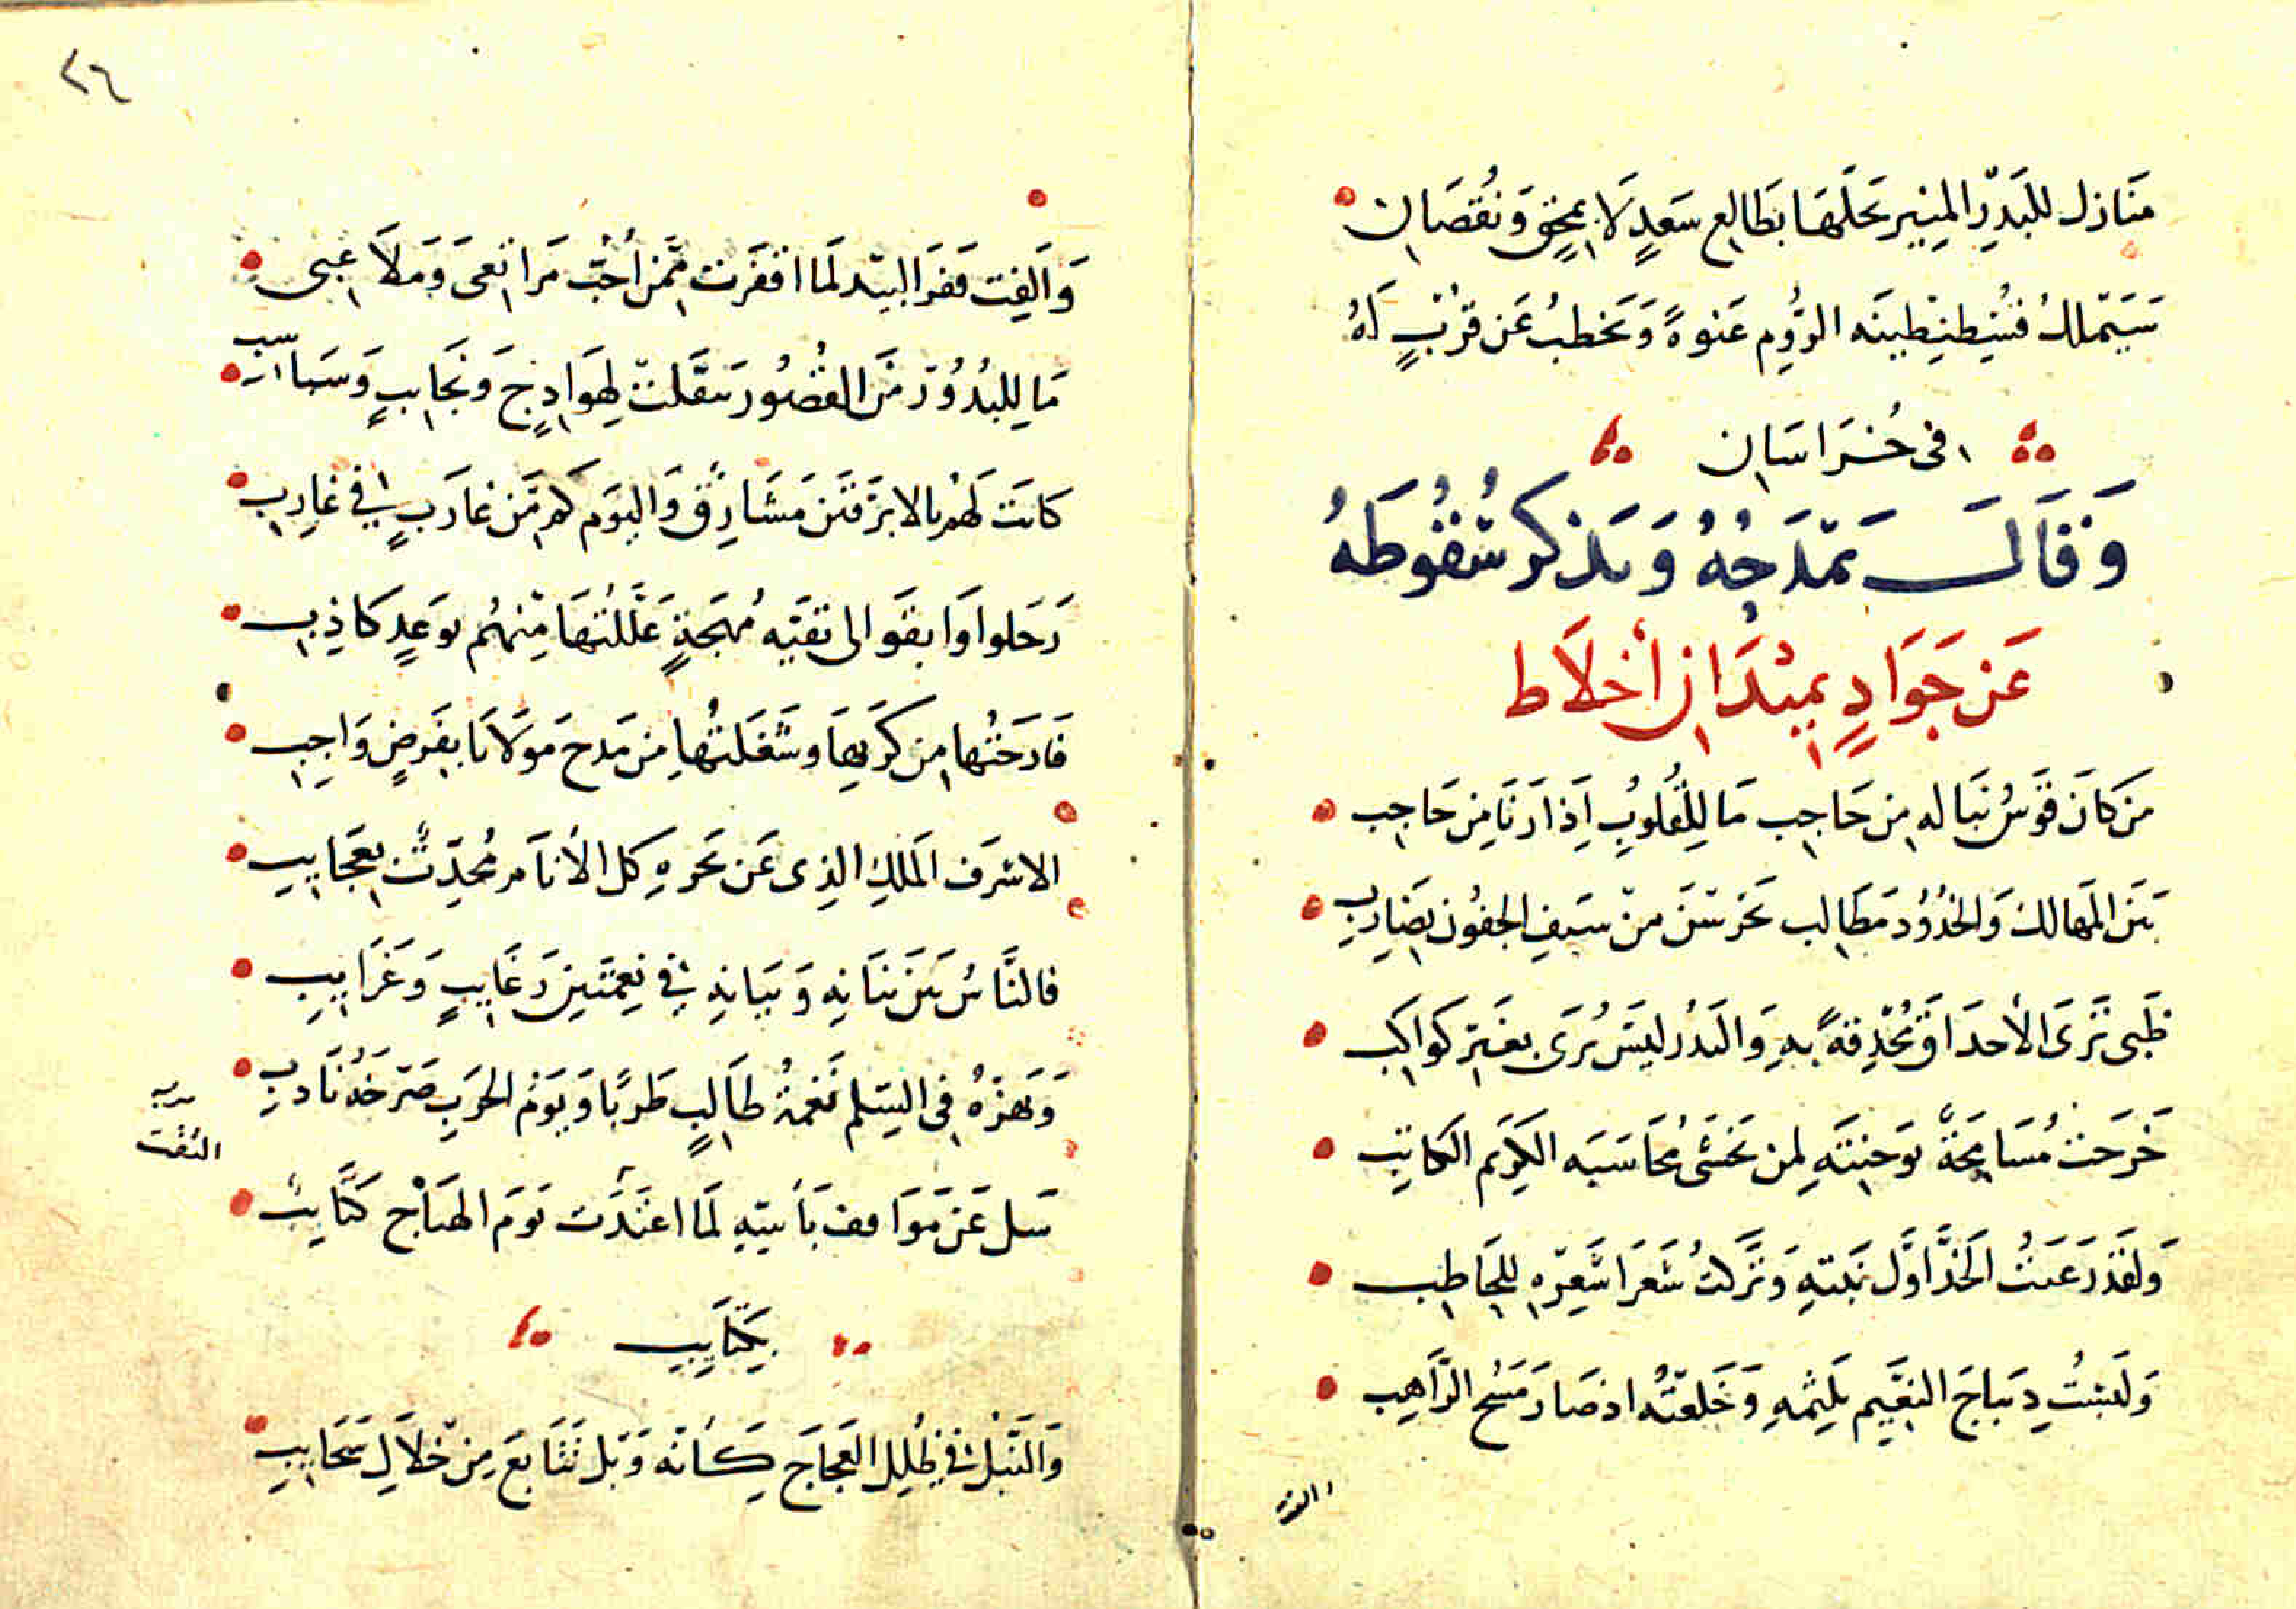 مَنَازل للبَدرِ المنِير تحَلّهَا بطَالِعِ سَعدٍ لَا بمحِقٍ وَنُقصَانِ
سَيَملكُ قُسِطنطِينَه الرُّومِ عَنوةً وَيخطبُ عَن قُربٍ لَهُ
في خُراسَانِ
وَقَالَ يَمْدَحُهُ وَيذكر سُقُوطَهُ
عَن جَوَادٍ بمَيْدَانِ أخلَاط
مَن كانَ قَوسُ نبَالهِ من حَاجِب مَا لِلقُلوُبِ اَذا رَنَا مِن حَاجِب
بَينَ المَهالك وَالخدُوُد مَطَالِب تحرسنَ منّ سَيفِ الجفُون بضَارِبِ
ظَبى تَرَى الأحدَاقَ مُحْدِقةً بهِ وَالبَدْر ليسَ يُرَى بغَيرِ كواكبِ
خَرجَت مُسَامِحَةً بوَجنتَهِ لمن يَخشَى مُحَاسَبَه الكِرَمِ الكاتِبِ
وَلقَد رَعَيتُ الخَدَّ اوَّل نَبتهِ وَتَركتُ شَعرَا شَعِرَه للِحَاطِبِ
وَلَبِستُ ديبَاجَ النعَيمِ بَلِثمهِ وَخَلعَتُه اذ صَارَ مَسْحِ الرَّاهِبِ
والفت
٢٦
وَاَلفِت قفرَ البيد لَما اقفَرت ممّن أحُبّ مَراتعى وَمَلاَعبى
مَا لِلبدُوُر مَن القُصُور تنقَّلت لِهَوَادِجٍ وَنجَايبٍ وَسَباسب
كانَت لَهُم بالابرَقَينَ مَشَارِقٌ وَاليوَم كم مَن غارَبٍ فِي غارِبِ
رَحَلوا وَابقَوا لى بَقيَه مُهجَةٍ عَلَّلتُهَا مِنهُم بوَعدٍ كَاذِبِ
فارَحتُها مِن كَربهَا وشَغَلتُها مِن مَدح مَولَانا بفَرضٍ وَاجِبِ
الاشرَف المَلكِ الذِى عَن بَحرهِ كل الأنَامِ مُحَدِّثٌ بعَجَايبِ
فالنَّاسُ بَينَ بنَانهِ وَبيَانهِ فِي نعِمَتَينِ رَغَايبٍ وَغَرَايبِ
وَتهزّهُ فِى السِلم نَغمةُ طَالِبٍ طَربًا وَيَومُ الحَربِ صَرخَةُ نَادِبِ
سَل عَن مَوَاقف بَأسِهِ لَما اغتَدَت يَومَ الهيَاجِ كتَايبٌ
بكتَايبِ
وَالنَبلُ فِي ظُللِ العَجَاجَ كأنّه وَبل تَتَابَعَ مِن خلاَلِ سَحَايبِ